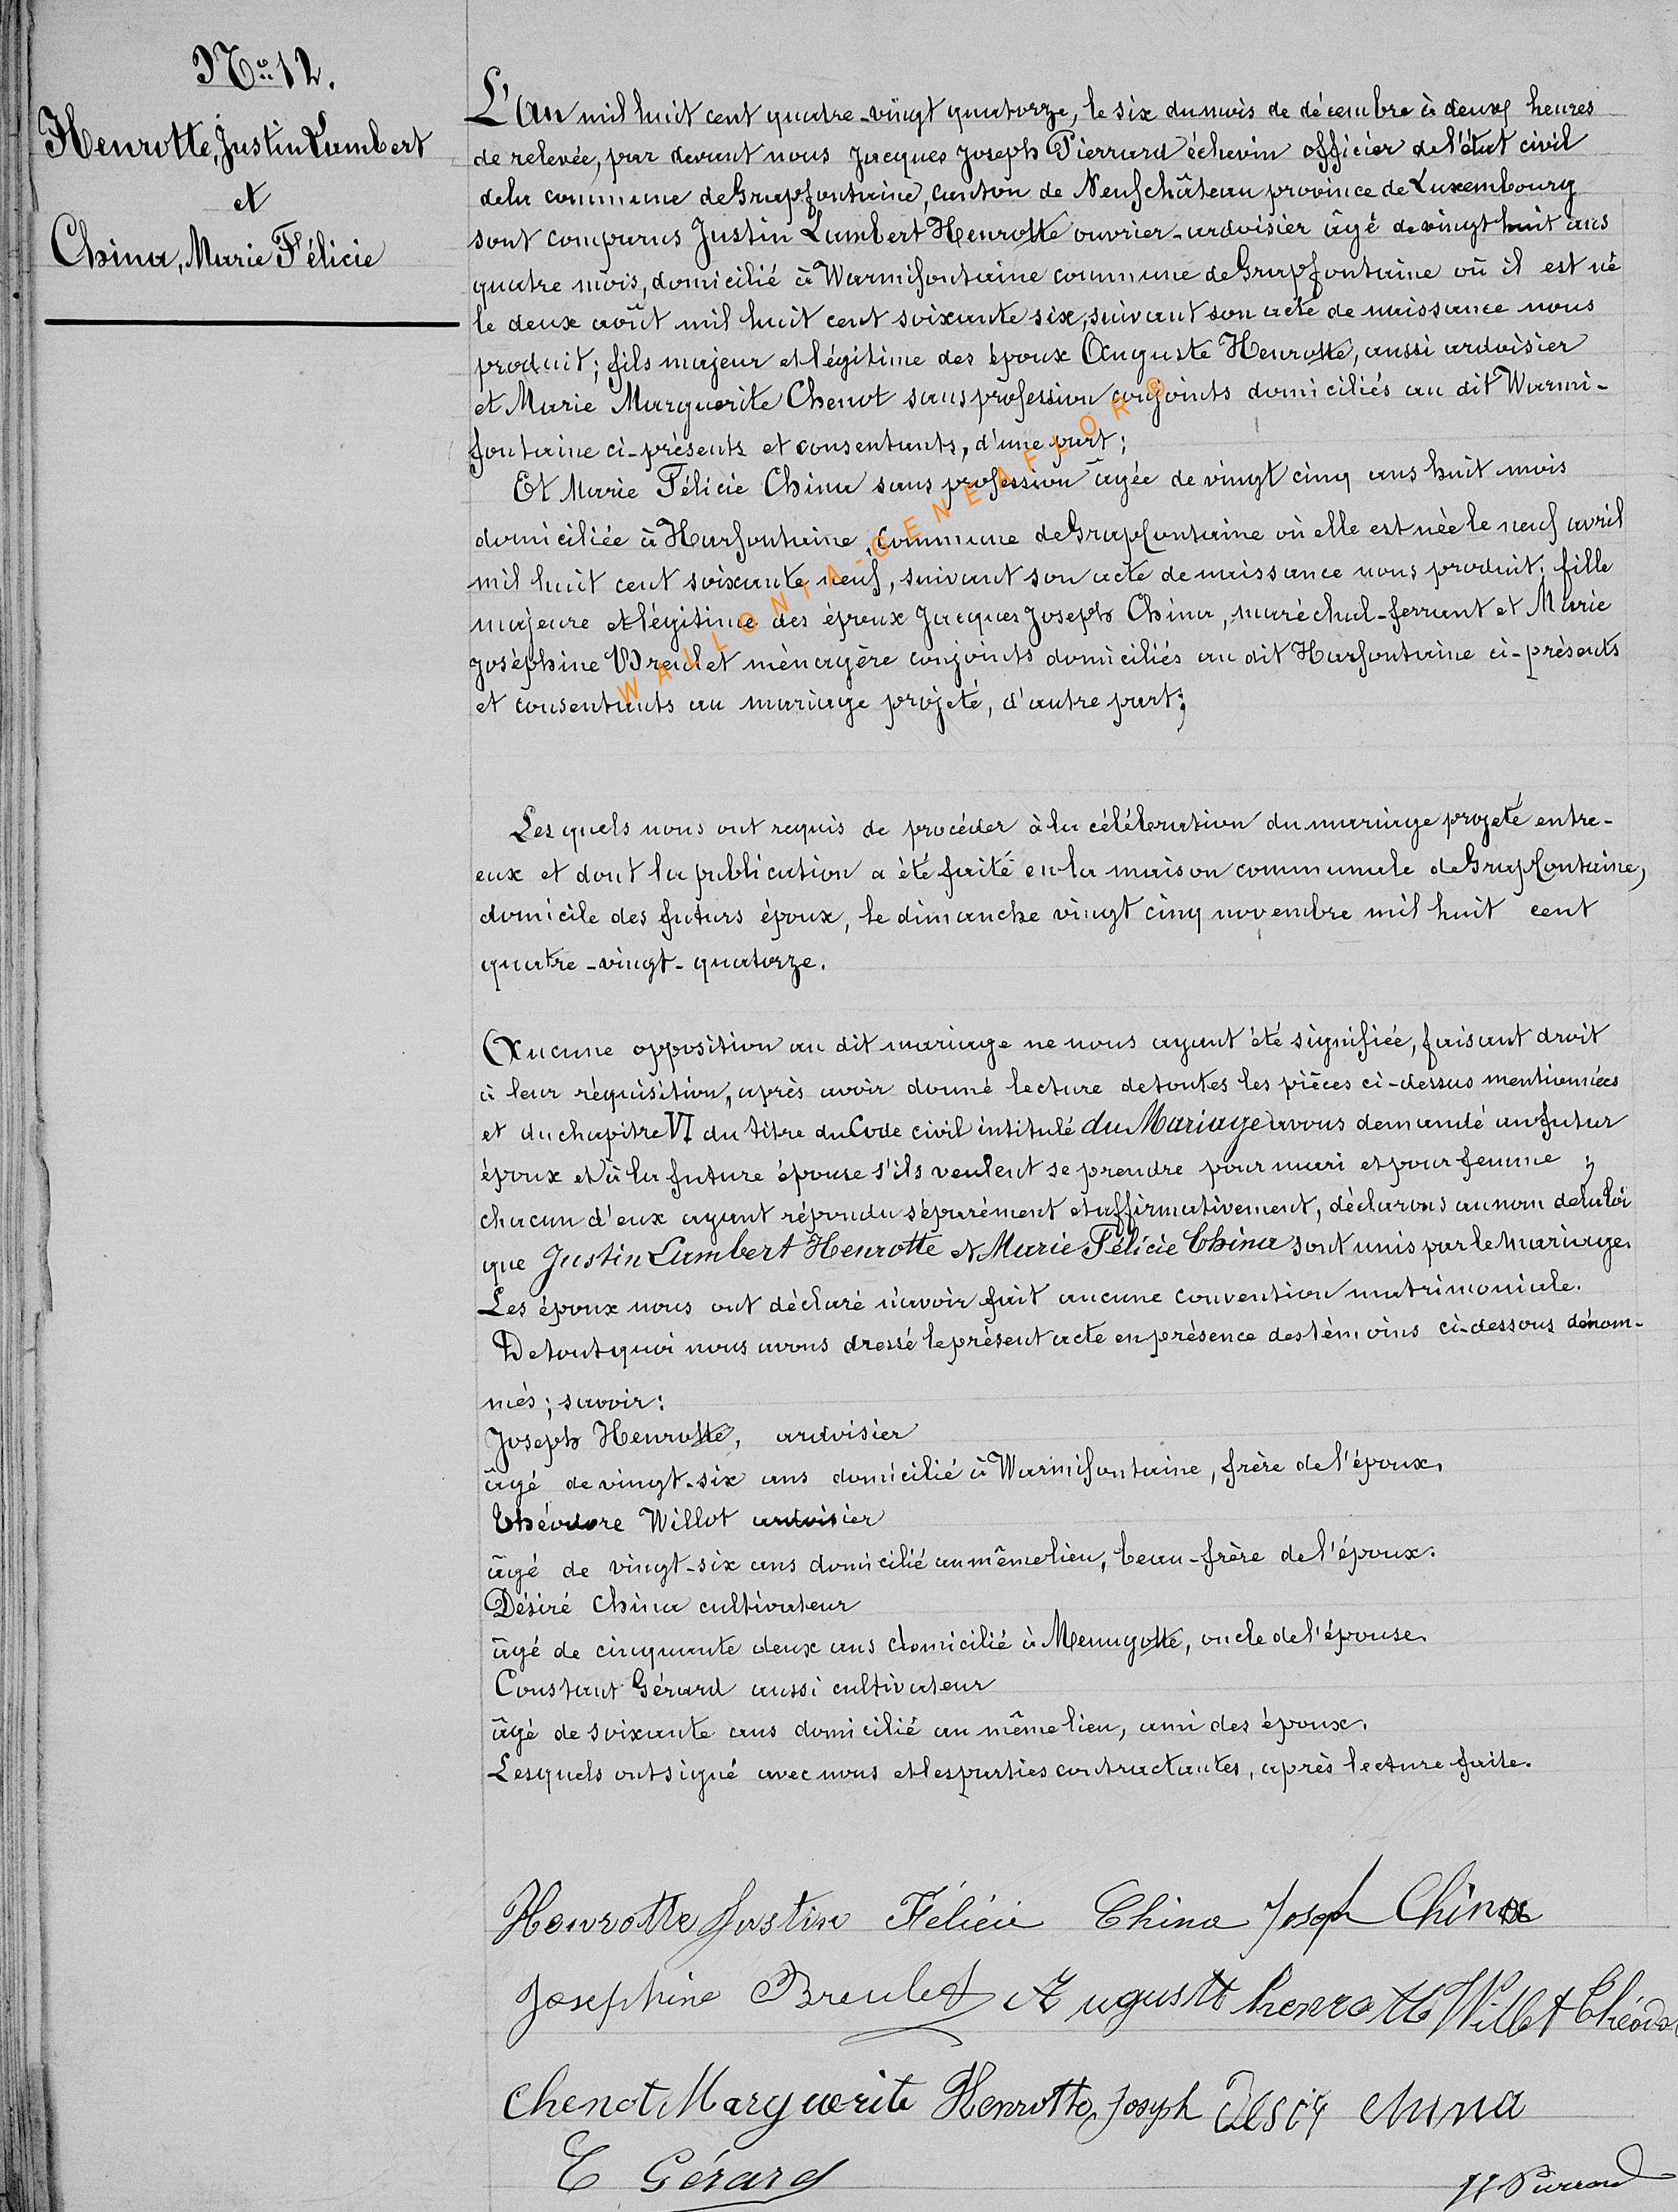 No 12.
Henrotte, Justin Lambert
et
China, Marie Félicie
L'An mil huit cent quatre-vingt quatorze, le six du mois de décembre à deux heures
de relevée, par devant nous Jacques Joseph Pierrard échevin officier de l'état civil
de la commune de Grapfontaine, canton de Neufchâteau province de Luxembourg
sont comparus Justin Lambert Henrotte ouvrier-ardoisier âgé de vingt huit ans
quatre mois, domicilié à Warmifontaine commune de Grapfontaine où il est né
le deux août mil huit cent soixante six, suivant son acte de naissance nous
produit; fils majeur et légitime des époux Auguste Henrotte, aussi ardoisier
et Marie Marguerite Chenot sans profession conjoints domiciliés au dit Warmi-
fontaine ci-présents et consentants, d'une part;
Et Marie Félicie China sans profession âgée de vingt cinq ans huit mois
domiciliée à Harfontaine, commune de Grapfontaine où elle est née le neuf avril
mil huit cent soixante neuf, suivant son acte de naissance nous produit; fille
majeure et légitime des époux Jacques Joseph China, maréchal-ferrant et Marie
Joséphine Breulet ménagère conjoints domiciliés au dit Harfontaine ci-présents
et consentants au mariage projeté, d'autre part;
Les quels nous ont requis de procéder à la célébration du mariage projeté entre-
eux et dont la publication a été faite en la maison communale de Grapfontaine,
domicile des futurs époux, le dimanche vingt cinq novembre mil huit cent
quatre-vingt-quatorze.
Aucune opposition au dit mariage ne nous ayant été signifiée, faisant droit
à leur réquisition, après avoir donné lecture de toutes les pièces ci-dessus mentionnées
et du chapitre VI du titre du Code civil intitulé du Mariage avons demandé au futur
époux et à la future épouse s'ils veulent se prendre pour mari et pour femme ;
chacun d'eux ayant répondu séparément et affirmativement, déclarons au nom de la loi
que Justin Lambert Henrotte et Marie Félicie China sont unis par le mariage.
Les époux nous ont déclaré n'avoir fait aucune convention matrimoniale.
De tout quoi nous avons dressé le présent acte en présence des témoins ci-dessous dénom-
més; savoir:
Joseph Henrotte, ardoisier
âgé de vingt-six ans domicilié à Warmifontaine, frère de l'époux.
Théodore Willot ardoisier
âgé de vingt-six ans domicilié au même lieu, beau-frère de l'époux.
Désiré China cultivateur
âgé de cinquante deux ans domicilié à Menugotte, oncle de l'épouse.
Constant Gérard aussi cultivateur
âgé de soixante ans domicilié au même lieu, ami des époux.
Lesquels ont signé avec nous et les parties contractantes, après lecture faite.
Henrotte Justin Félicie China Joseph China
Josephine Breulet Auguste henrotte Willot Théodo
Chenot Marguerite Henrotte Joseph China
C Gérard
JJ Pierrard
WALLONIA-GENEAFLOR®